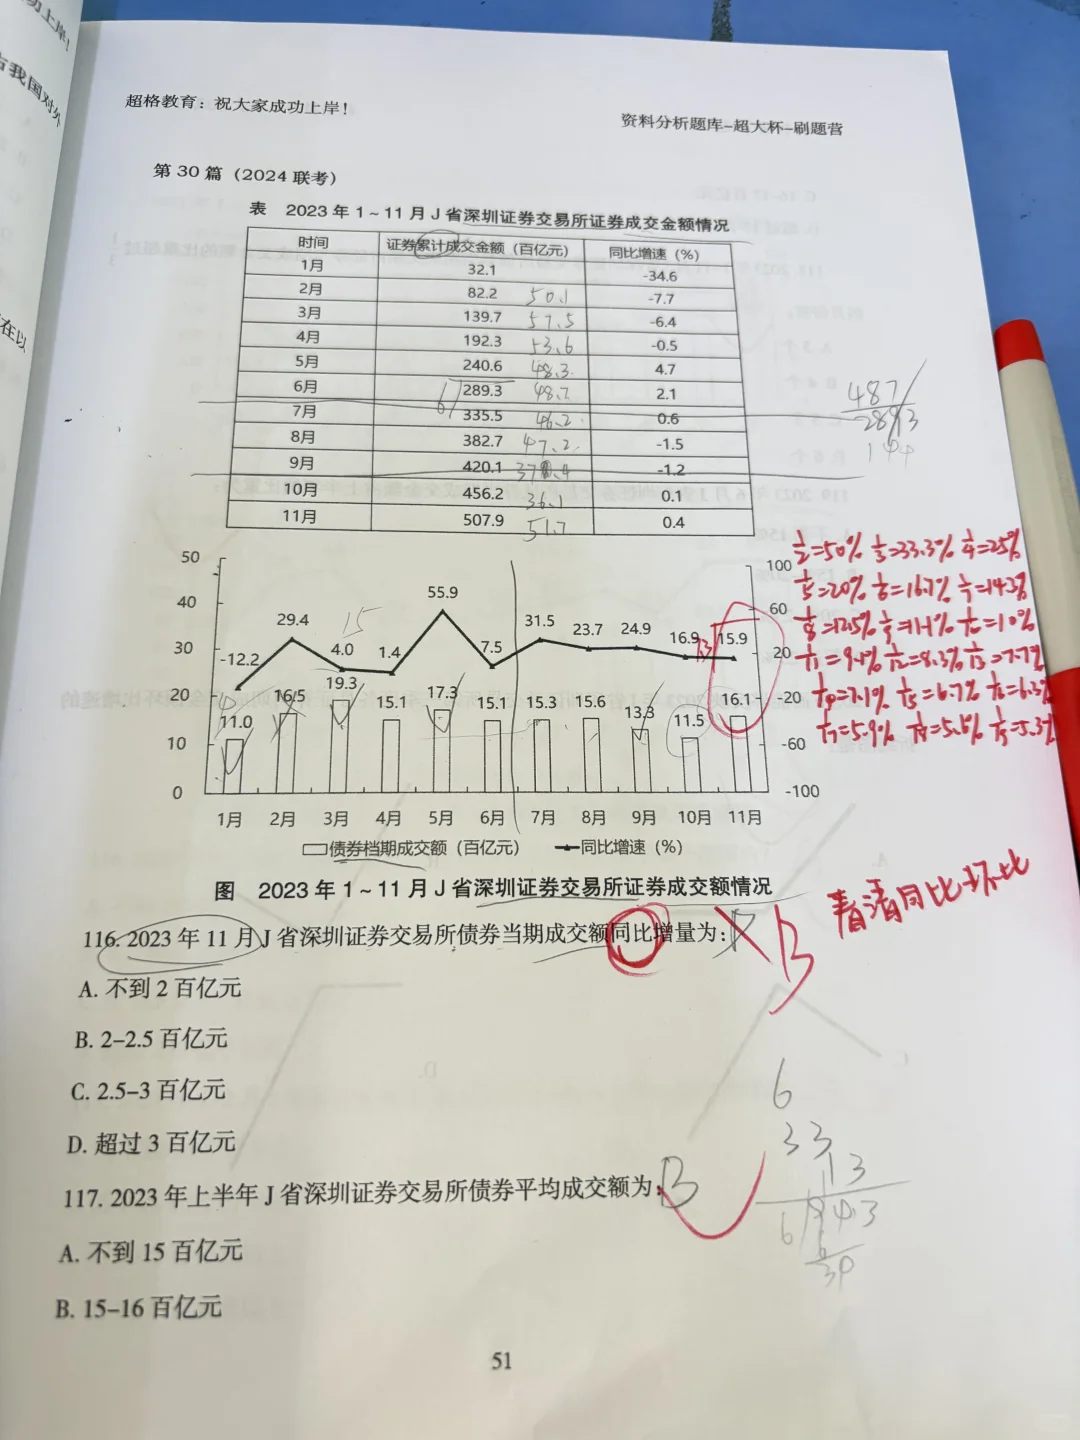 力上岸！
占我国对外
在以
超格教育：祝大家成功上岸！
资料分析题库-超大杯-刷题营
第 30 篇（2024 联考）
表 2023 年 1～11 月 J 省深圳证券交易所证券成交金额情况
时间 证券累计成交金额（百亿元） 同比增速（%）
1月 32.1 -34.6
2月 82.2 50.1 -7.7
3月 139.7 57.5 -6.4
4月 192.3 53.6 -0.5
5月 240.6 48.3 4.7
6月 289.3 48.7 2.1
7月 335.5 46.2 0.6
8月 382.7 47.2 -1.5
9月 420.1 37.4 -1.2
10月 456.2 36.1 0.1
11月 507.9 51.7 0.4
487
2893
144
1/2=50% 1/3=33.3% 1/4=25%
1/5=20% 1/6=16.7% 1/7=14.3%
1/8=12.5% 1/9=11.1% 1/10=10%
1/11=9.1% 1/12=8.3% 1/13=7.7%
1/14=7.1% 1/15=6.7% 1/16=6.3%
1/17=5.9% 1/18=5.6% 1/19=5.3%
50
40
30
20
10
0
100
60
20
-20
-60
-100
-12.2 29.4 4.0 1.4 55.9 7.5 31.5 23.7 24.9 16.9 15.9
15
11.0 16.5 19.3 15.1 17.3 15.1 15.3 15.6 13.3 11.5 16.1
1月 2月 3月 4月 5月 6月 7月 8月 9月 10月 11月
债券档期成交额（百亿元） 同比增速（%）
图 2023 年 1～11 月 J 省深圳证券交易所证券成交额情况
看清同比环比
116. 2023 年 11 月 J 省深圳证券交易所债券当期成交额同比增量为： D B
A. 不到 2 百亿元
B. 2-2.5 百亿元
C. 2.5-3 百亿元
D. 超过 3 百亿元
6
33
13
117. 2023 年上半年 J 省深圳证券交易所债券平均成交额为： B
A. 不到 15 百亿元
B. 15-16 百亿元
51